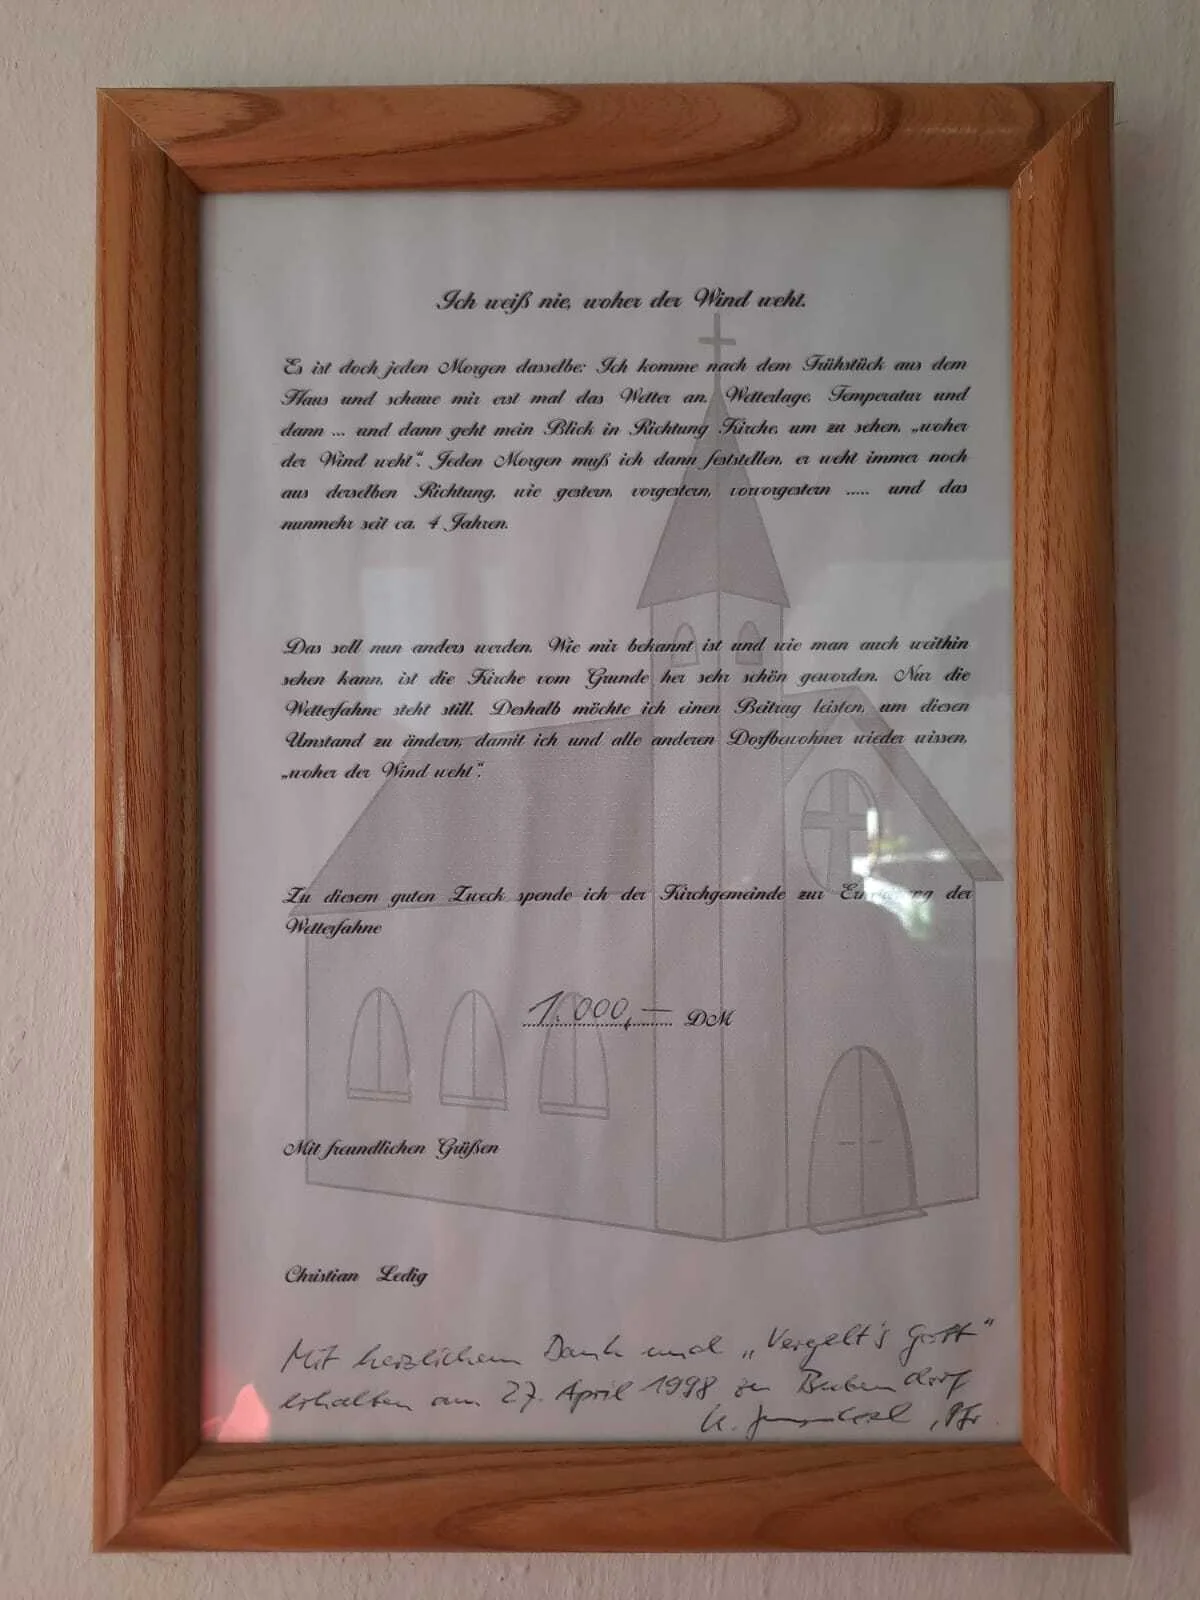 Ich weiß nie, woher der Wind weht.
Es ist doch jeden Morgen dasselbe: Ich komme nach dem Frühstück aus dem
Haus und schaue mir erst mal das Wetter an. Wetterlage, Temperatur und
dann ... und dann geht mein Blick in Richtung Kirche, um zu sehen, „woher
der Wind weht“. Jeden Morgen muß ich dann feststellen, er weht immer noch
aus derselben Richtung, wie gestern, vorgestern, vorvorgestern ..... und das
nunmehr seit ca. 4 Jahren.
Das soll nun anders werden. Wie mir bekannt ist und wie man auch weithin
sehen kann, ist die Kirche vom Grunde her sehr schön geworden. Nur die
Wetterfahne steht still. Deshalb möchte ich einen Beitrag leisten, um diesen
Umstand zu ändern, damit ich und alle anderen Dorfbewohner wieder wissen,
„woher der Wind weht“.
Zu diesem guten Zweck spende ich der Kirchgemeinde zur der
Wetterfahne
1.000,— DM
Mit freundlichen Grüßen
Christian Ledig
Mit herzlichem Dank und „Vergelt's Gott“
erhalten am 27. April 1998 zu Bubendorf
K. , Pfr